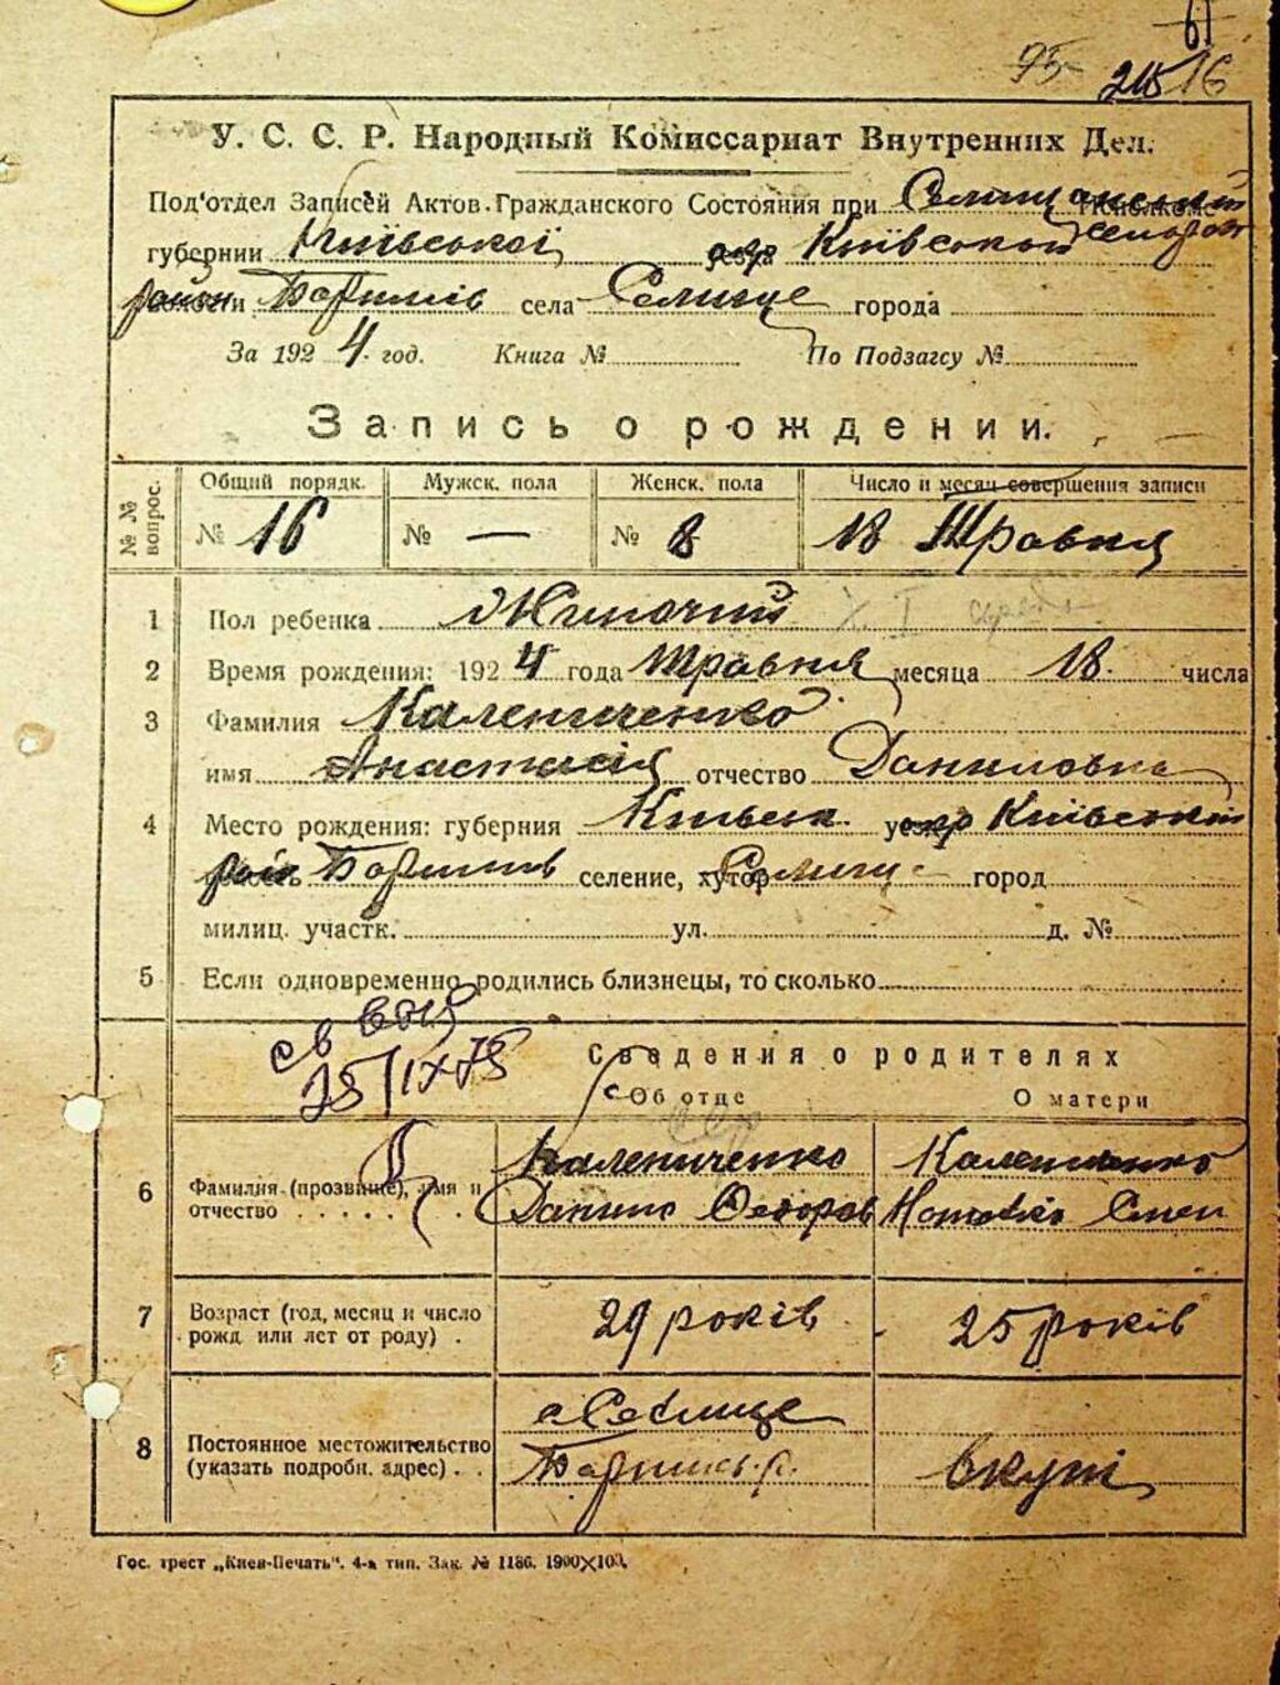 61
95 215 16
У. С. С. Р. Народный Комиссариат Внутренних Дел.
Под'отдел Записей Актов Гражданского Состояния при Селищанській Исполкоме
губернии Київської уезда окр Київської сельради
волости район Баришів села Селище города
За 1924 год. Книга № По Подзагсу №
Запись о рождении.
№ № вопрос. Общий порядк. Мужск. пола Женск. пола Число и месяц совершения записи
№ 16 № — № 8 18 Травня
1 Пол ребенка Жиночий
2 Время рождения: 1924 года Травня месяца 18 числа
3 Фамилия Калениченко
имя Анастасія отчество Даниловна
4 Место рождения: губерния Київськ окр Київської
рай Баришів селение, хутор Селище город
милиц. участк. ул. д. №
5 Если одновременно родились близнецы, то сколько
Сведения о родителях
25/IX 75
Об отце О матери
Калениченко Калениченко
6 Фамилия (прозвище), имя и
отчество Данило Федоров Наталка Семен
7 Возраст (год, месяц и число
рожд. или лет от роду) 29 років 25 років
с Селище
8 Постоянное местожительство
(указать подробн. адрес) Баришів. р. вкупі
Гос. трест „Киев-Печать". 4-я тип. Зак. № 1186. 1900×100.